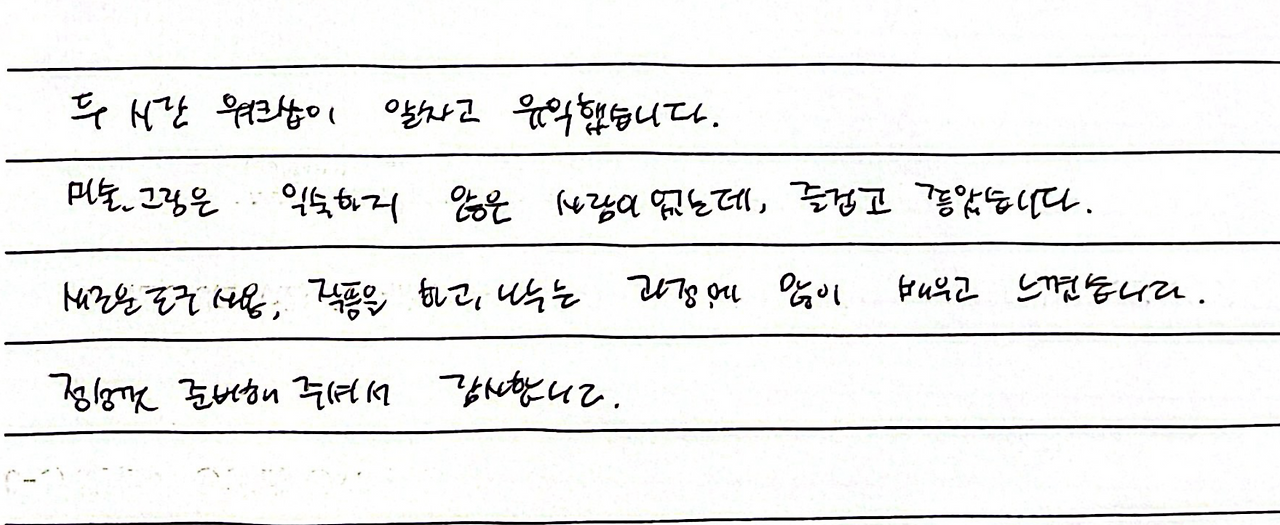 두 시간 워크숍이 알차고 유익했습니다.
미술.그림은 익숙하지 않은 사람이었는데, 즐겁고 좋았습니다.
새로운 도구 사용, 작품을 하고, 나누는 과정에 많이 배우고 느꼈습니다.
정성껏 준비해 주셔서 감사합니다.